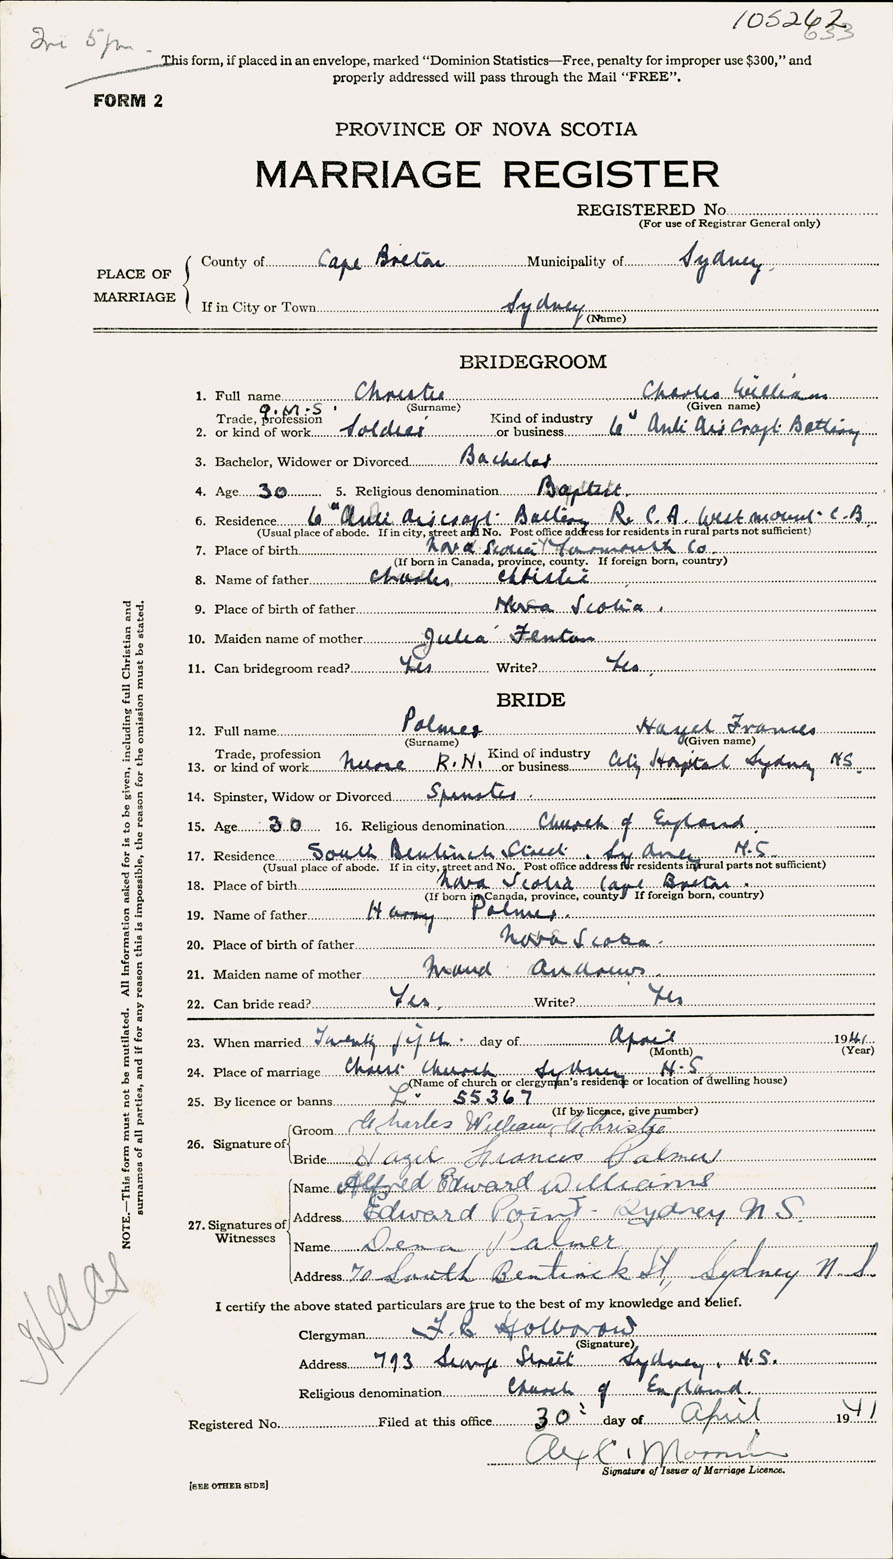 105262
633
Fri 5 pm.
This form, if placed in an envelope, marked “Dominion Statistics—Free, penalty for improper use $300,” and
properly addressed will pass through the Mail “FREE”.
FORM 2
PROVINCE OF NOVA SCOTIA
MARRIAGE REGISTER
REGISTERED No.
(For use of Registrar General only)
PLACE OF MARRIAGE
County of Cape Breton Municipality of Sydney.
If in City or Town Sydney
(Name)
BRIDEGROOM
1. Full name Christie Charles William
(Surname) (Given name)
Q.M.S.
2. Trade, profession or kind of work Soldier Kind of industry or business 6" Anti Aircraft Battery
3. Bachelor, Widower or Divorced Bachelor
4. Age 30 5. Religious denomination Baptist.
6. Residence 6" Anti Aircraft Battery R.C.A. Westmount C.B
(Usual place of abode. If in city, street and No. Post office address for residents in rural parts not sufficient)
7. Place of birth Nova Scotia Yarmouth Co.
(If born in Canada, province, county. If foreign born, country)
8. Name of father Charles Christie
9. Place of birth of father Nova Scotia.
10. Maiden name of mother Julia Fenton
11. Can bridegroom read? Yes Write? Yes.
BRIDE
12. Full name Palmer Hazel Frances
(Surname) (Given name)
13. Trade, profession or kind of work Nurse R.N. Kind of industry or business City Hospital Sydney N.S.
14. Spinster, Widow or Divorced Spinster.
15. Age 30 16. Religious denomination Church of England.
17. Residence South Bentinck Street, Sydney N.S.
(Usual place of abode. If in city, street and No. Post office address for residents in rural parts not sufficient)
18. Place of birth Nova Scotia Cape Breton.
(If born in Canada, province, county. If foreign born, country)
19. Name of father Harry Palmer.
20. Place of birth of father Nova Scotia.
21. Maiden name of mother Maud Andrews.
22. Can bride read? Yes. Write? Yes
23. When married Twenty fifth. day of April 1941
(Month) (Year)
24. Place of marriage Christ Church Sydney N.S.
(Name of church or clergyman's residence or location of dwelling house)
25. By licence or banns L. 55367
(If by licence, give number)
26. Signature of Groom Charles William Christie
Bride Hazel Frances Palmer
27. Signatures of Witnesses Name Alfred Edward Williams
Address Edward Point - Sydney N.S.
Name Dena Palmer
Address 70 South Bentinck St, Sydney N.S.
I certify the above stated particulars are true to the best of my knowledge and belief.
Clergyman Holborow
(Signature)
Address 793 George Street Sydney, N.S.
Religious denomination Church of England.
Registered No. Filed at this office 30 day of April 1941
Signature of Issuer of Marriage Licence.
[SEE OTHER SIDE]
NOTE.—This form must not be mutilated. All information asked for is to be given, including full Christian and
surnames of all parties, and if for any reason this is impossible, the reason for the omission must be stated.